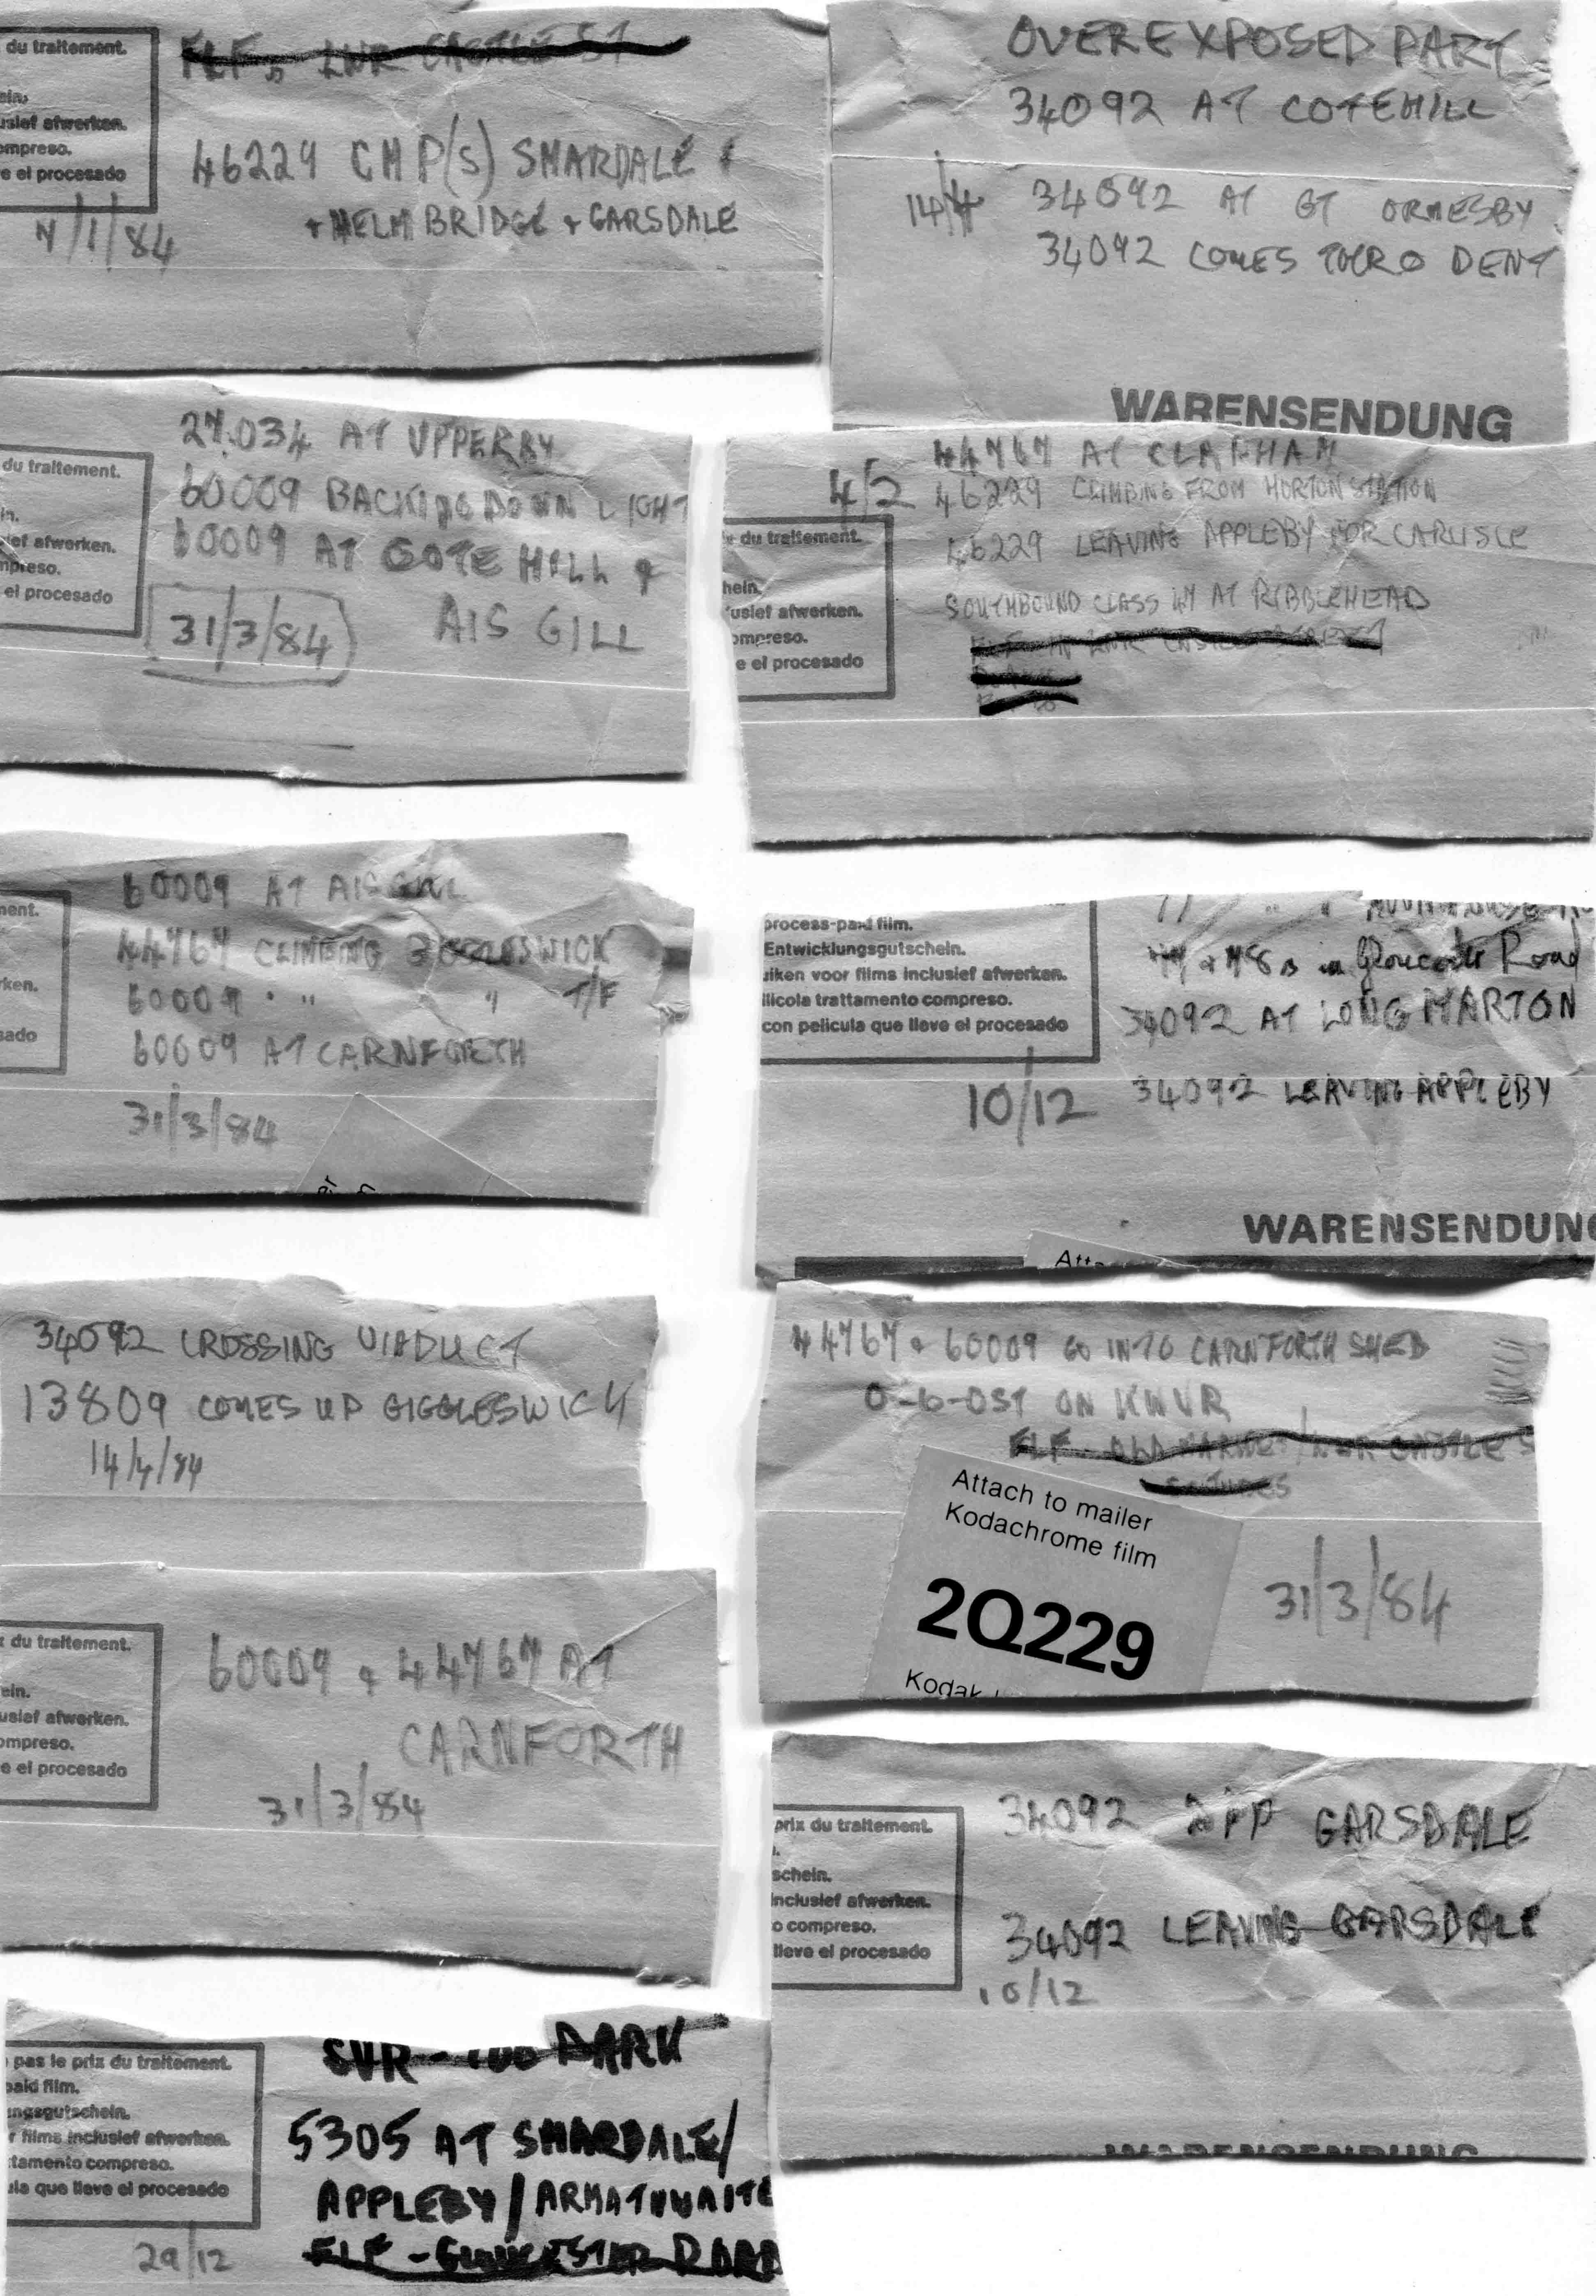 du traitement.
usief afwerken.
ompreso.
e el procesado
46229 CMP(S) SMARDALE +
+ HELM BRIDGE + GARSDALE
7/1/84
OVEREXPOSED PART
34092 AT COTEHILL
14/4 34092 AT GT ORMESBY
34092 COMES THRO DENT
WARENSENDUNG
27.034 AT UPPERBY
60009 BACKING DOWN LIGHT
60009 AT COTE HILL &
AIS GILL
31/3/84
du traitement.
ief afwerken.
mpreso.
el procesado
44767 AT CLAPHAM
4/2 46229 CLIMBING FROM HORTON STATION
46229 LEAVING APPLEBY FOR CARLISLE
SOUTHBOUND CLASS 47 AT RIBBLEHEAD
du traitement.
hein.
uslef afwerken.
ompreso.
e el procesado
60009 AT AIS GILL
44767 CLIMBING GIGGLESWICK
60009 " " " T/F
60009 AT CARNFORTH
31/3/84
ment.
rken.
sado
process-paid film.
Entwicklungsgutschein.
uiken voor films inclusief afwerken.
llicola trattamento compreso.
con pelicula que lleve el procesado
in Gloucester Road
34092 AT LONG MARTON
10/12 34092 LEAVING APPLEBY
WARENSENDUNG
34092 CROSSING VIADUCT
13809 COMES UP GIGGLESWICK
14/4/84
44767 & 60009 GO INTO CARNFORTH SHED
0-6-0ST ON KWVR
Attach to mailer
Kodachrome film
2Q229
Kodak
31/3/84
du traitement.
ein.
uslef afwerken.
ompreso.
e el procesado
60009 & 44767 AT
CARNFORTH
31/3/84
prix du traitement.
schein.
inclusief afwerken.
o compreso.
lleve el procesado
34092 APP GARSDALE
34092 LEAVING GARSDALE
10/12
WARENSENDUNG
pas le prix du traitement.
paid film.
ungsgutschein.
r films inclusief afwerken.
tamento compreso.
ula que lleve el procesado
SVR - TOO DARK
5305 AT SMARDALE/
APPLEBY/ARMATHWAITE
ELF - GLOUCESTER ROAD
29/12